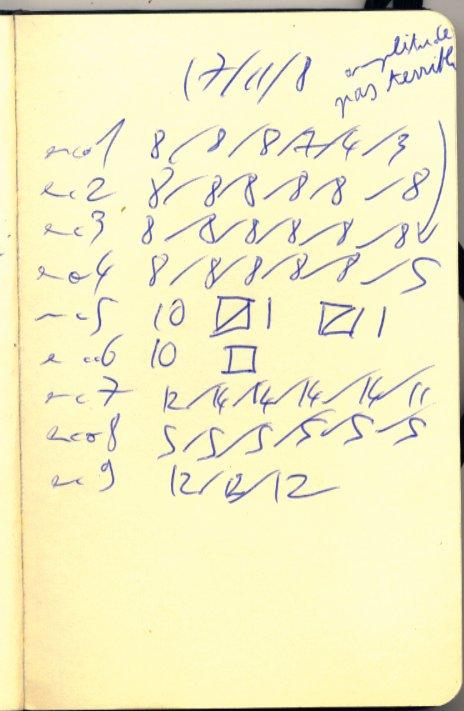 17/11/8
amplitude
pas terrible
exo1 8/8/8/7/4/3
exo2 8/8/8/8/8/8
exo3 8/8/8/8/8/8
exo4 8/8/8/8/8/5
exo5 10 1 11
exo6 10
exo7 12/14/14/14/14/11
exo8 5/5/5/5/5/5
exo9 12/12/12